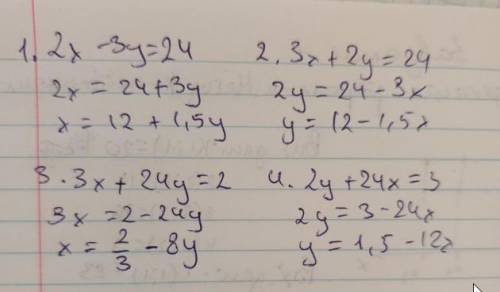 1. 2x - 3y = 24
2x = 24 + 3y
x = 12 + 1,5y
2. 3x + 2y = 24
2y = 24 - 3x
y = 12 - 1,5x
3. 3x + 24y = 2
3x = 2 - 24y
x = 2/3 - 8y
4. 2y + 24x = 3
2y = 3 - 24x
y = 1,5 - 12x